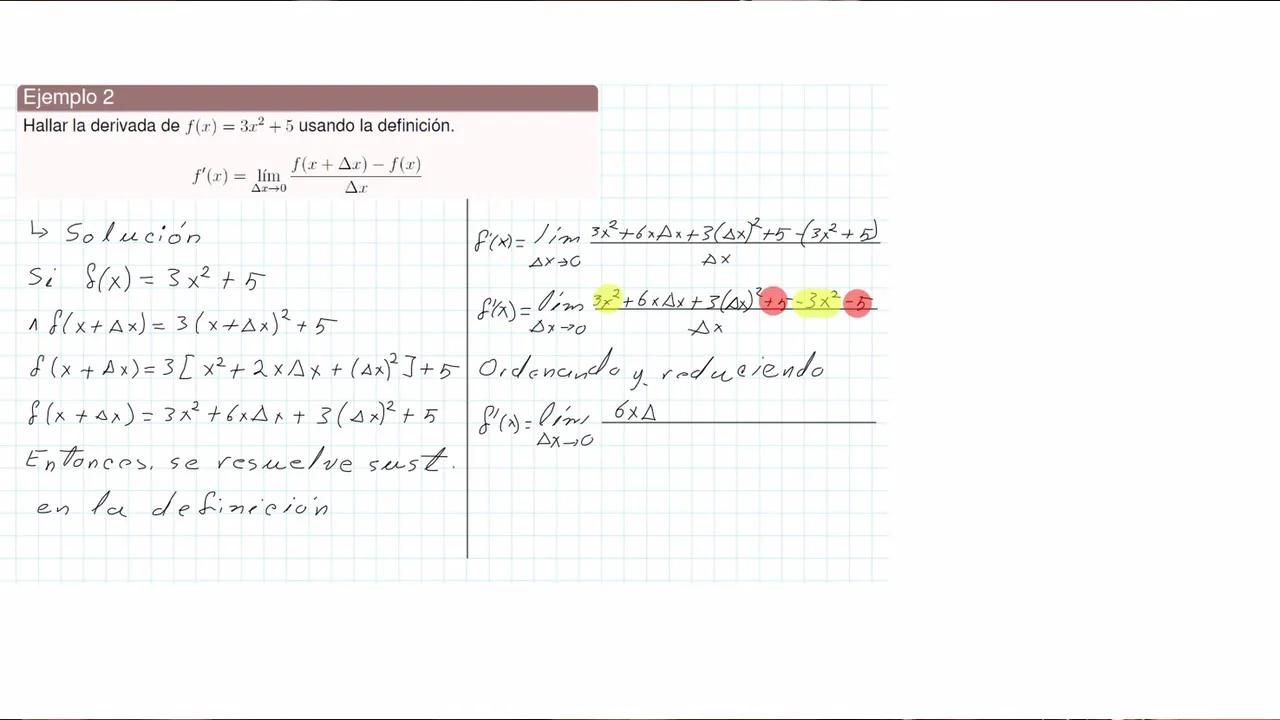 Ejemplo 2
Hallar la derivada de f(x) = 3x² + 5 usando la definición.
f′(x) = lím Δx→0 (f(x + Δx) − f(x)) / Δx
↳ Solución
Si f(x) = 3x² + 5
∧ f(x+Δx) = 3(x+Δx)² + 5
f(x + Δx) = 3[x² + 2xΔx + (Δx)²] + 5
f(x + Δx) = 3x² + 6xΔx + 3(Δx)² + 5
Entonces, se resuelve sust.
en la definición
f'(x) = lím Δx→0 (3x² + 6xΔx + 3(Δx)² + 5 − (3x² + 5)) / Δx
f'(x) = lím Δx→0 (3x² + 6xΔx + 3(Δx)² + 5 − 3x² − 5) / Δx
Ordenando y reduciendo
f'(x) = lím Δx→0 6xΔ